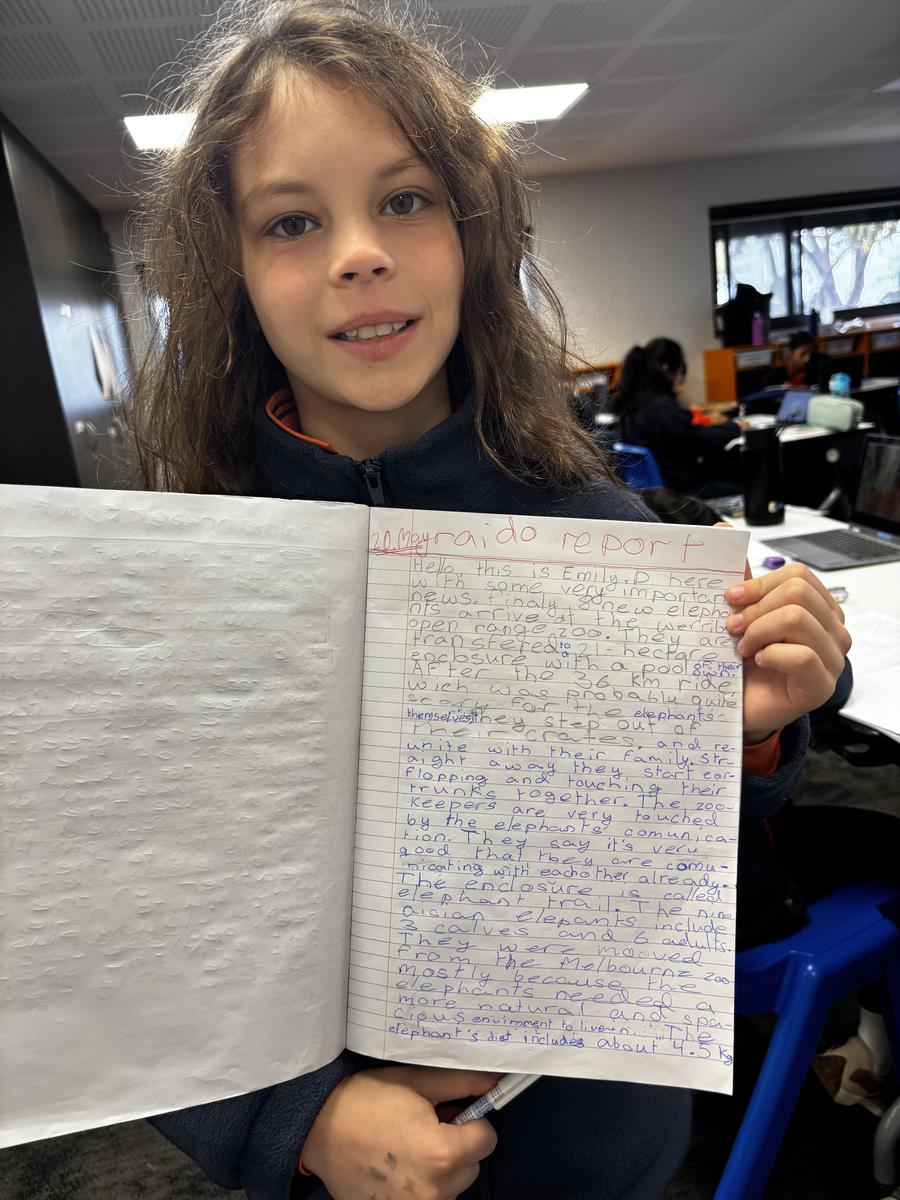 20. May raido report
Hello this is Emily.D here
with some very importan
news. Finaly 9 new elepha
nts arrive at the werribe
open range zoo. They are
transfered to a 21-hectare
enclosure with a pool of their own.
After the 36 km ride
wich was probably quite
scary for the elephants
themselves, they step out of
their crates. and re-
unite with their family. Str-
aight away they, start ear-
flopping and touching their
trunks together. The zoo-
keepers are very touched
by the elephants' comunica-
tion. They say it's very
good that they are comu-
nicating with eachother already.
The enclosure is called
elephant trail. The nine
aisian elepants include
3 calves and 6 adults.
They were mooved
from the Melbourne zoo
mostly because the
elephants needed a
more natural and spa-
cious envirment to live in. The
elephant's diet includes about 4.5 kg